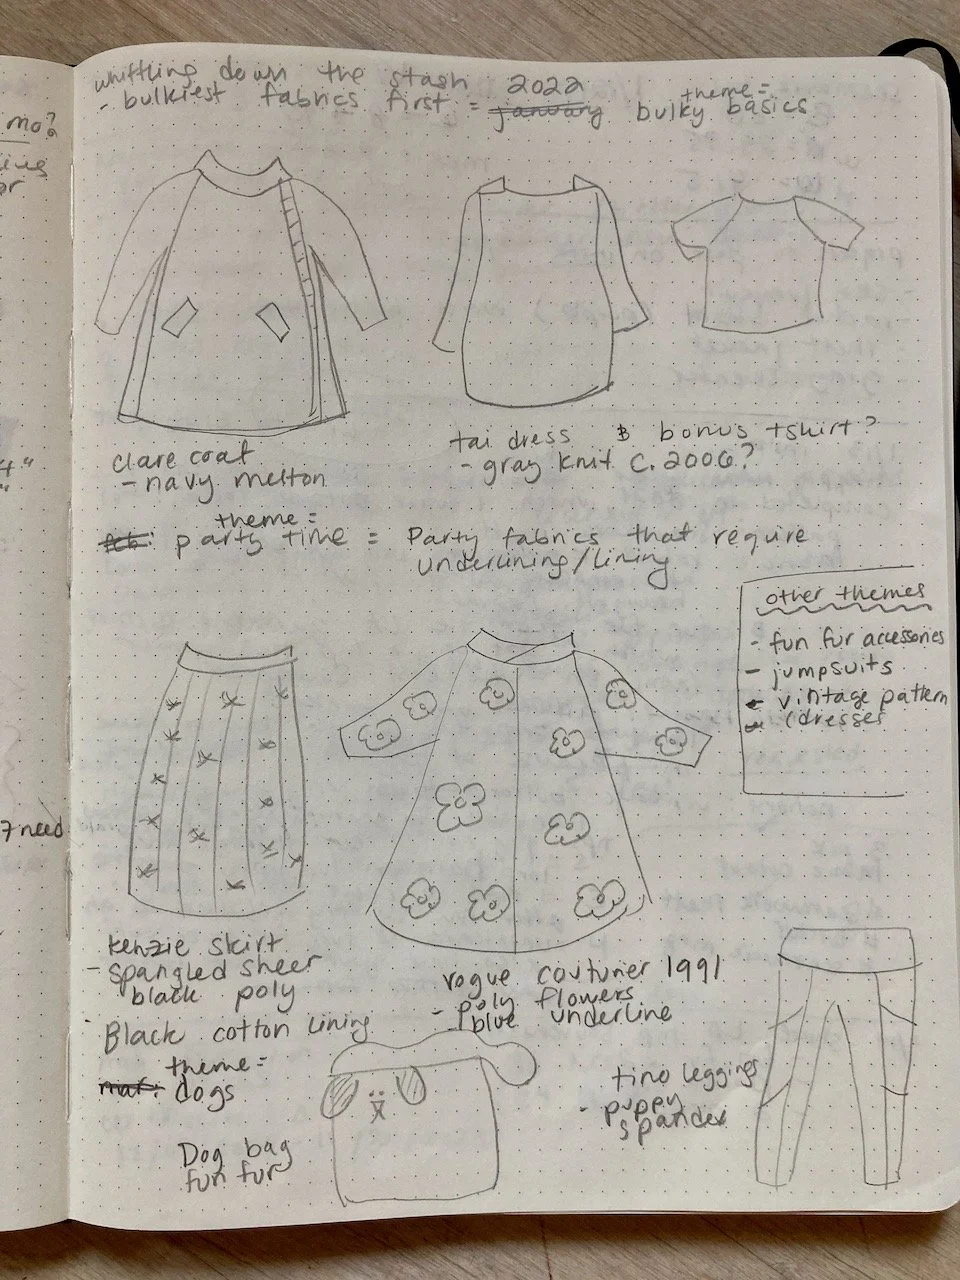 whittling down the stash 2022
- bulkiest fabrics first = january theme = bulky basics
mo?
clare coat
- navy melton
tai dress & bonus tshirt?
- gray knit C. 2006?
feb: theme = party time = Party fabrics that require
underlining/lining
other themes
- fun fur accessories
- jumpsuits
- vintage pattern
- (dresses
need
kenzie skirt
- spangled sheer
black poly
Black cotton lining
vogue couturier 1991
- poly flowers
blue underline
mar: theme = dogs
Dog bag
fun fur
tino leggings
- puppy
spandex